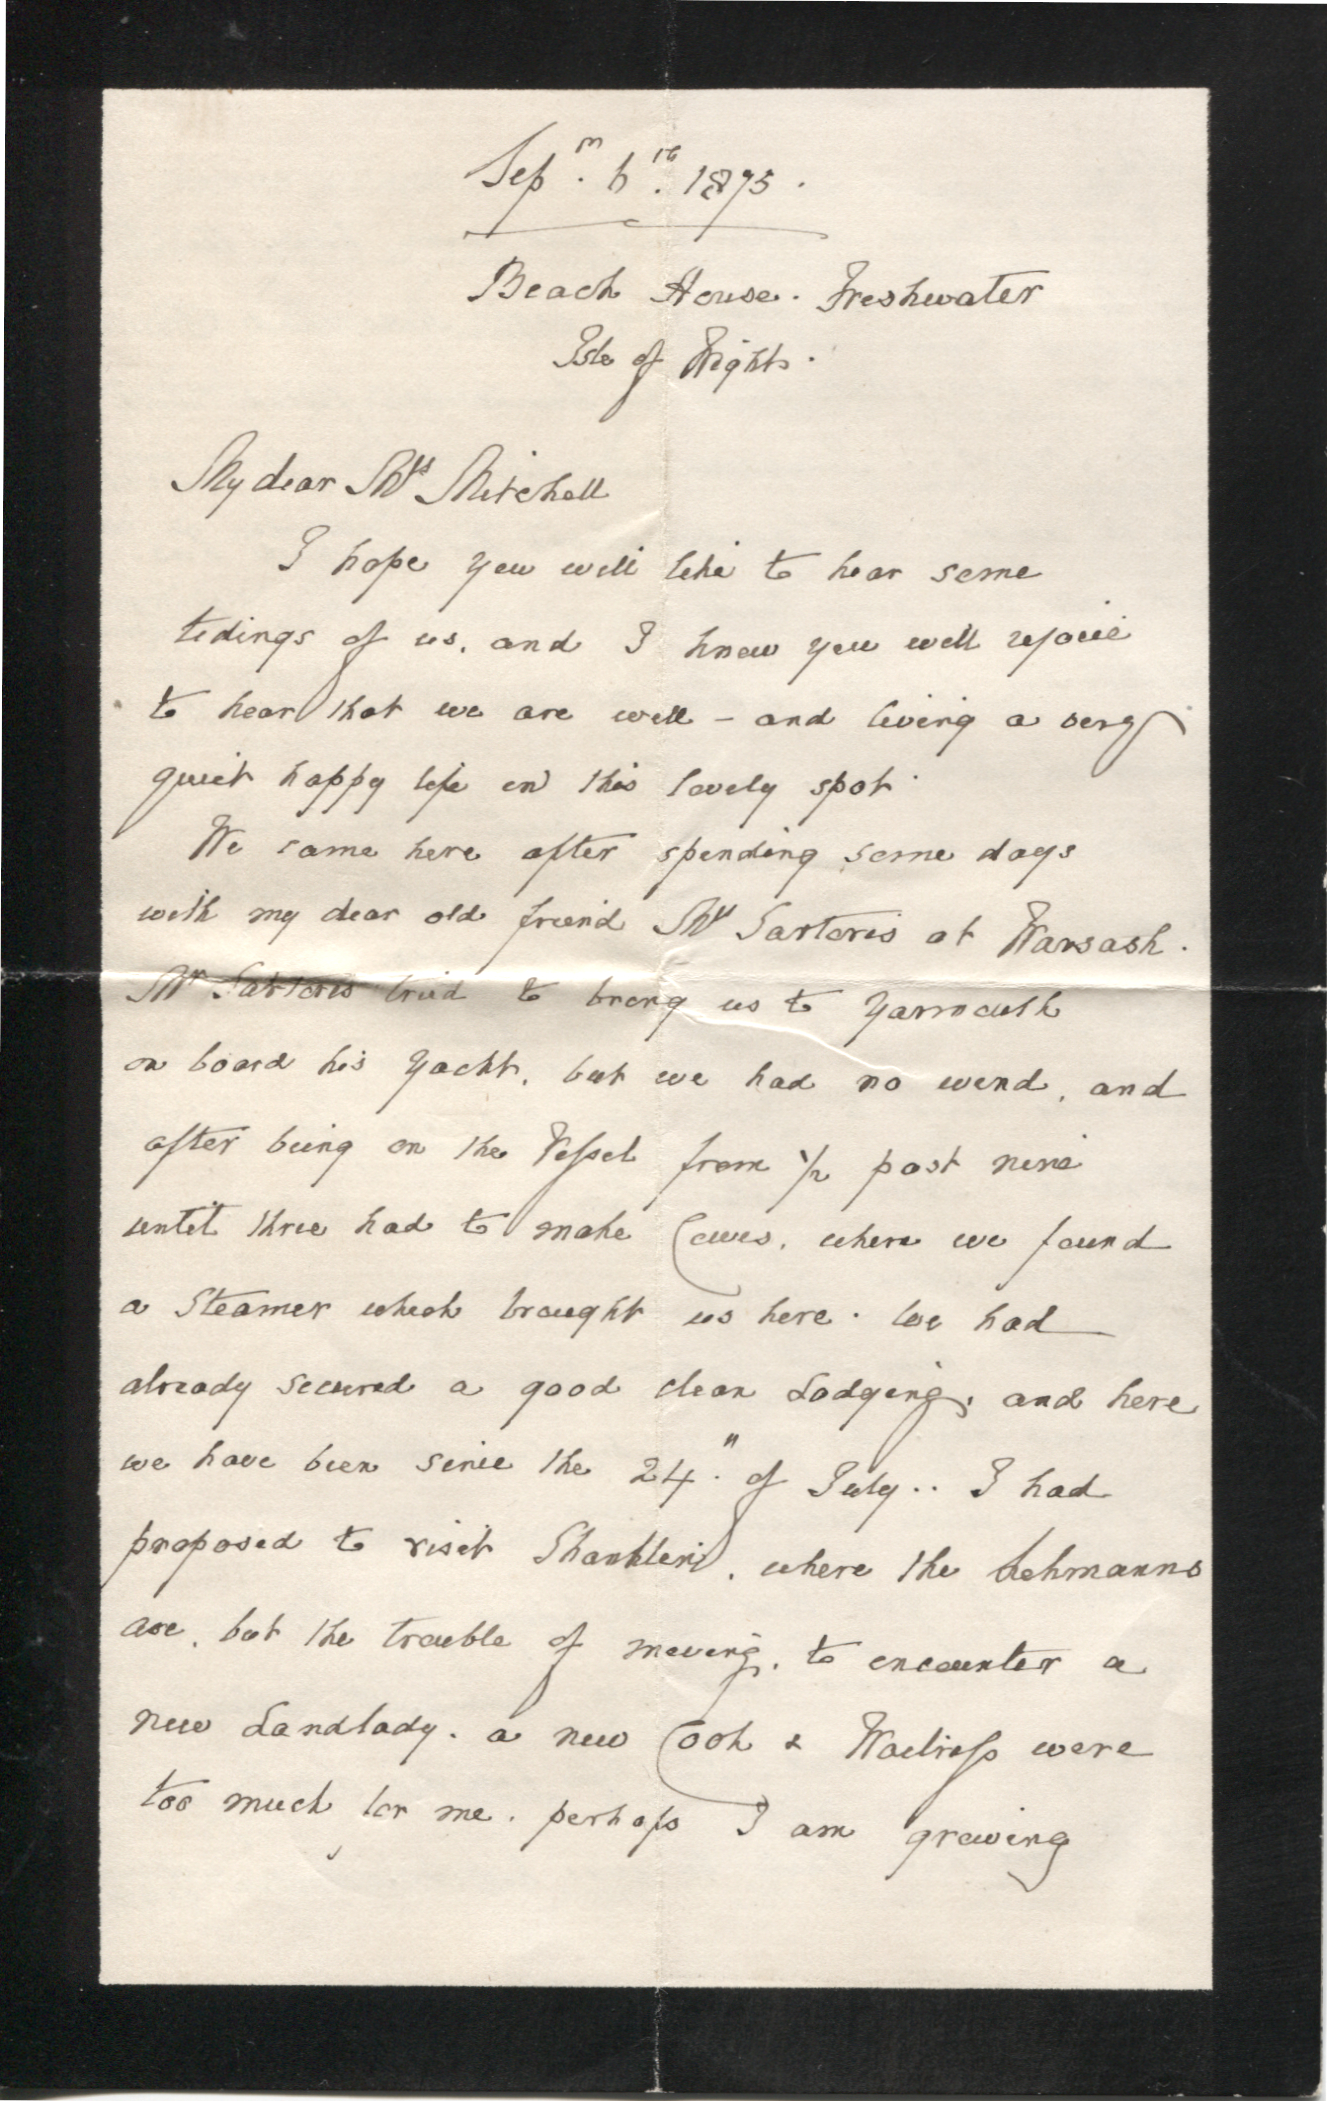 Sepm. 6th. 1875.
Beach House. Freshwater
Isle of Wight.
My dear Mrs Mitchell
I hope you will like to hear some
tidings of us, and I know you will rejoice
to hear that we are well – and living a very
quiet happy life in this lovely spot.
We came here after spending some days
with my dear old friend Mrs Sartoris at Warsash.
Mr Sartoris tried to bring us to Yarmouth
on board his Yacht, but we had no wind, and
after being on the Vessel from 1/2 past nine
until three had to make Cowes, where we found
a Steamer which brought us here. We had
already secured a good clean Lodging, and here
we have been since the 24". of July.. I had
proposed to visit Shanklin, where the Lehmanns
are, but the trouble of moving, to encounter a
new Landlady. a new Cook & Waitress were
too much for me. perhaps I am growing